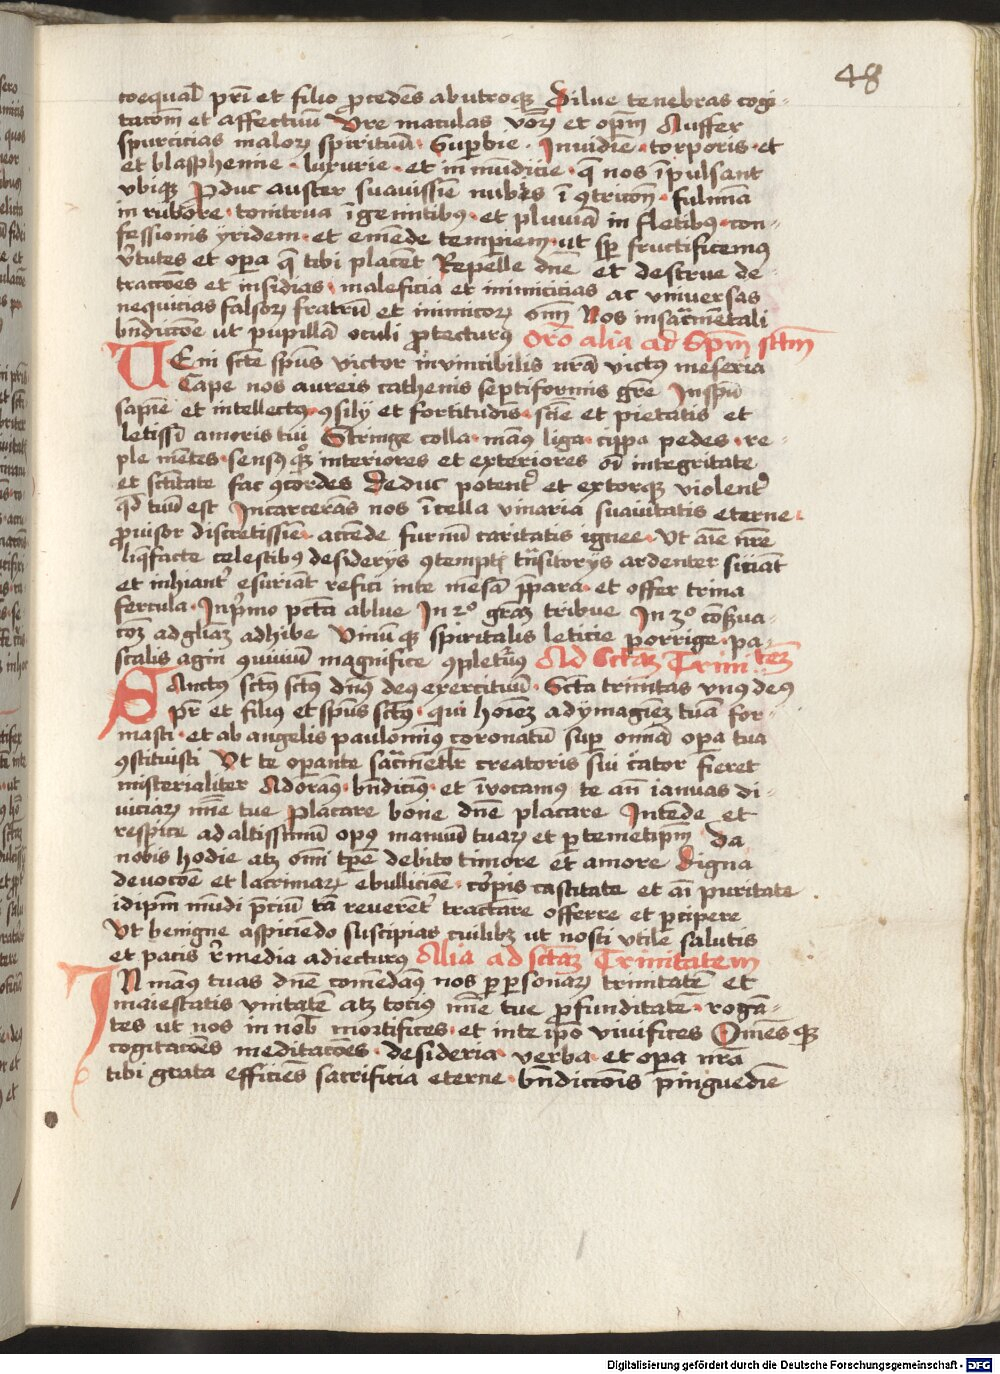 48
coequal pr̄i et filio ꝓcedēs abutroqꝫ Dilue tenebras cogi-
tacōm et affectuū Vre maculas vōꝝ et opm̄ Auffer
spurcicias maloꝝ spirituū. Supbie. Inuidie. torporis. et
et blasphemie. luxurie. et in mūdicie. q̄ nos īpulsant
vbiqꝫ Pduc auster suauissiē nubes ī ꝯtricōn. fulmīa
in rubore. tonitrua ī gemitibꝰ. et pluuiā in fletibꝰ. con-
fessionis yridem. et emēde temperiem. ut sp̄ fructificemꝰ
v̄tutes et opa q̄ tibi placēt Repelle dnē et destrue de-
tractōes et insidias. maleficia et inimicicias ac vniuersas
nequicias falsoꝝ fratrū et inimicoꝝ om̄ Nos insac̄mētali
bn̄dictōe ut pupillā oculi ꝓtecturꝰ Oro alia ad Spm̄ sctm̄
Veni scte spūs victor invincibilis nr̄a victus meseria
Cape nos aureis cathenis septiformis gre Inspū
sapiē et intellectꝰ. ꝯsilij et fortitudis. sciē et pietatis et
letissī amoris tui Stringe colla. manꝰ liga. cippa pedes. re-
ple mētes. sensꝰ qꝫ interiores et exteriores oī integritate
et sctitate fac ꝯcordes Deduc potent̄ et extorqꝫ violent̄
qd tuū est Incarcerās nos ī cella vinaria suauitatis eterne.
ꝓuisor discretissiē. accende furnū caritatis ignee. Vt aīe nr̄e
liq̄facte celestibꝰ desiderijs ꝯtempt trāsitorijs ardenter siciāt
et inhiant̄ esuriāt refici inte mēsa p̄para. et offer trina
fercula. Inp̄mo pctā ablue In 2º graꝫ tribue In 3º cōsua-
coꝫ ad gliaꝫ adhibe Vinū qꝫ spiritalis leticie porrige. pa-
scalis agni ꝯuiuiū magnifice ꝯpleturꝰ Ad Sctaꝫ Trinitateꝫ
Sanctus sctꝰ sctꝰ dnꝰ deꝰ exercituū. Scta trinitas vnꝰ deꝰ
pr̄ et filius et spūs sctꝰ. qui hoīeꝫ ad ymagieꝫ tuā for-
masti. et ab angelis paulominꝰ coronatū sup omīa opa tua
ꝯstituisti Vt te opante sac̄mētlr creatoris sui c̄ator fieret
misterialiter Adoramꝰ. bn̄dicimꝰ. et īuocamꝰ te an̄ ianuas di-
uiciaꝝ mīe tue Placare bone dnē placare Intēde et
respice ad altissimū opꝰ manuū tuaꝝ et p temetipm̄ Da
nobis hodie atꝫ omī tpē debito timore et amore digna
deuocōe et lacrimaꝝ ebulliciōe. corpis castitate et aī puritate
idipm̄ mūdi p̄ciū tā reuerēt̄ tractare offerre et pcipere
Vt benigne aspiciēdo suscipias cuilibꝫ ut nosti vtile salutis
et pacis r̄media adiecturꝰ Alia ad sctaꝫ Trinitatem
In manꝰ tuas dnē comēdamꝰ nos p psonaꝝ trinitatē et
maiestatis vnitatē atꝫ tociꝰ mīe tue ꝓfunditatē. rogā-
tes ut nos in nob mortifices. et inte ip̄o viuifices Om̄es qꝫ
cogitacōes meditacōes. desideria. verba. et opa nr̄a
tibi grata efficiēs sacrificia eterne. bn̄dictōis pinguediē
Digitalisierung gefördert durch die Deutsche Forschungsgemeinschaft - DFG